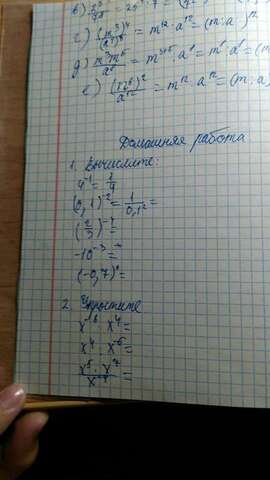 г) (m³)⁴/(a³)⁴ = m¹² · a¹² = (m : a)¹²
д) m³m⁵/a⁸ = m³⁺⁵ · a⁸ = m⁸ · a⁸ = (m
е) = m¹² · a¹² = (m : a)
Домашняя работа
1. Вычислите:
4⁻¹ = 1/4
(0,1)⁻² = 1/0,1²
(2/3)⁻¹ =
-10⁻³ =
(-0,7)⁰ =
2. Упростите
x⁻⁸ · x⁴ =
x⁴ · x⁻⁵ =
x⁵ · x⁷ / =